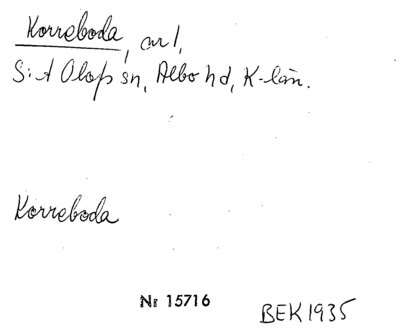 Korreboda, nr 1,
S:t Olofs sn, Albo hd, K-län.
Korreboda
Nr 15716
BEK 1935